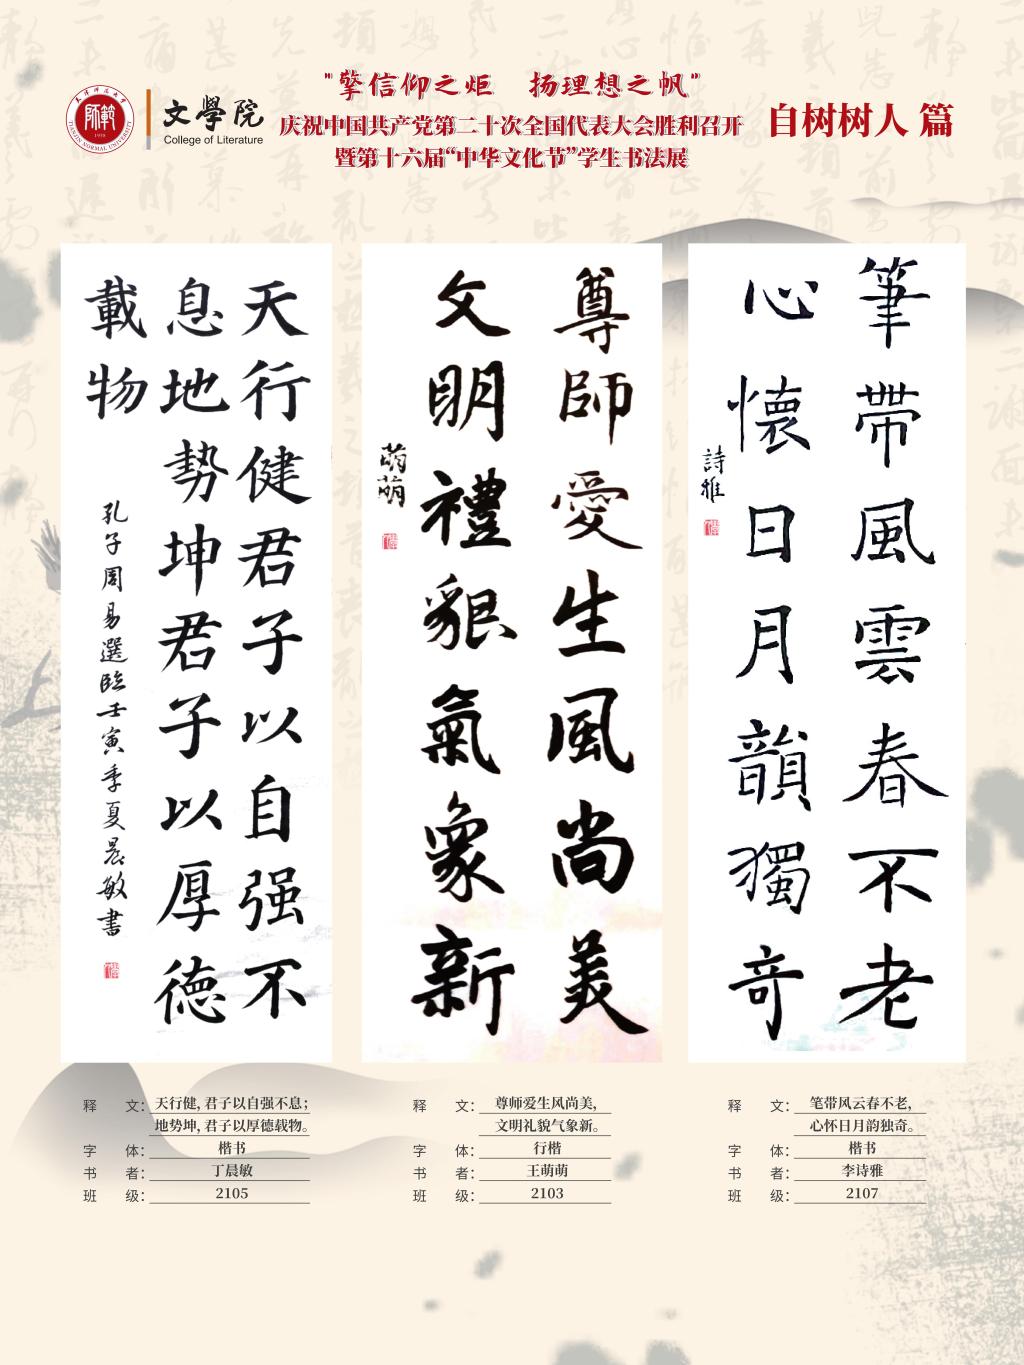 天津師范大学
師範
1958
TIANJIN NORMAL UNIVERSITY
文學院
College of Literature
"擎信仰之炬 扬理想之帆"
庆祝中国共产党第二十次全国代表大会胜利召开
暨第十六届“中华文化节”学生书法展
自树树人 篇
天行健君子以自强不
息地势坤君子以厚德
載物
孔子周易選臨壬寅季夏晨敏書
尊師愛生風尚美
文明禮貌氣象新
萌萌
筆帶風雲春不老
心懷日月韻獨奇
詩雅
释 文：天行健，君子以自强不息；
地势坤，君子以厚德载物。
字 体：楷书
书 者：丁晨敏
班 级：2105
释 文：尊师爱生风尚美，
文明礼貌气象新。
字 体：行楷
书 者：王萌萌
班 级：2103
释 文：笔带风云春不老，
心怀日月韵独奇。
字 体：楷书
书 者：李诗雅
班 级：2107